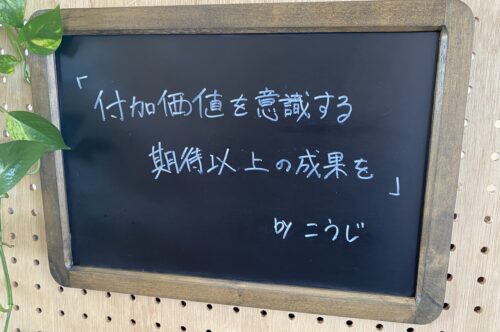 「付加価値を意識する
期待以上の成果を」
by こうじ